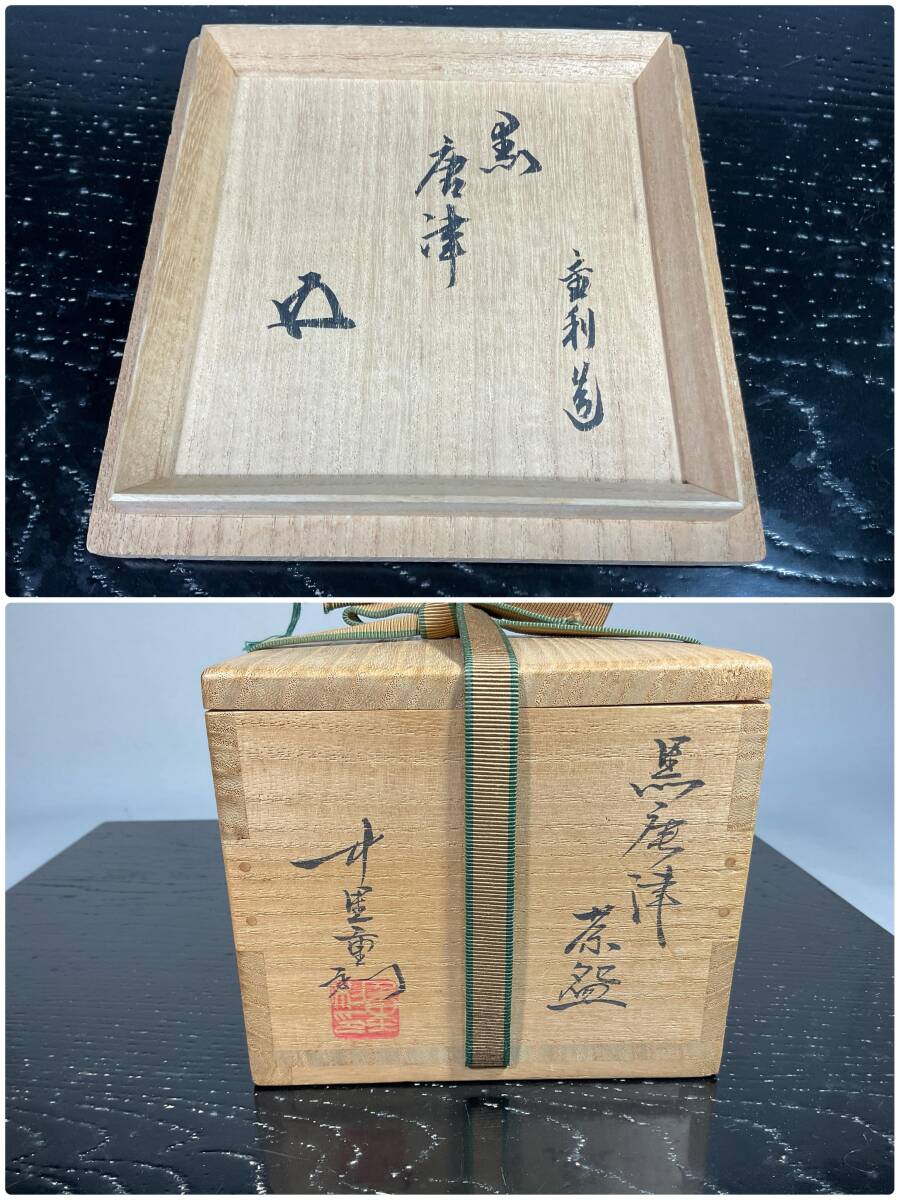 黒
唐津
重利造
黒唐津
茶盌
中里重利